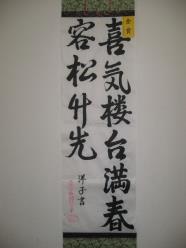 喜気楼台満春
容松竹先
洋子書
金賞